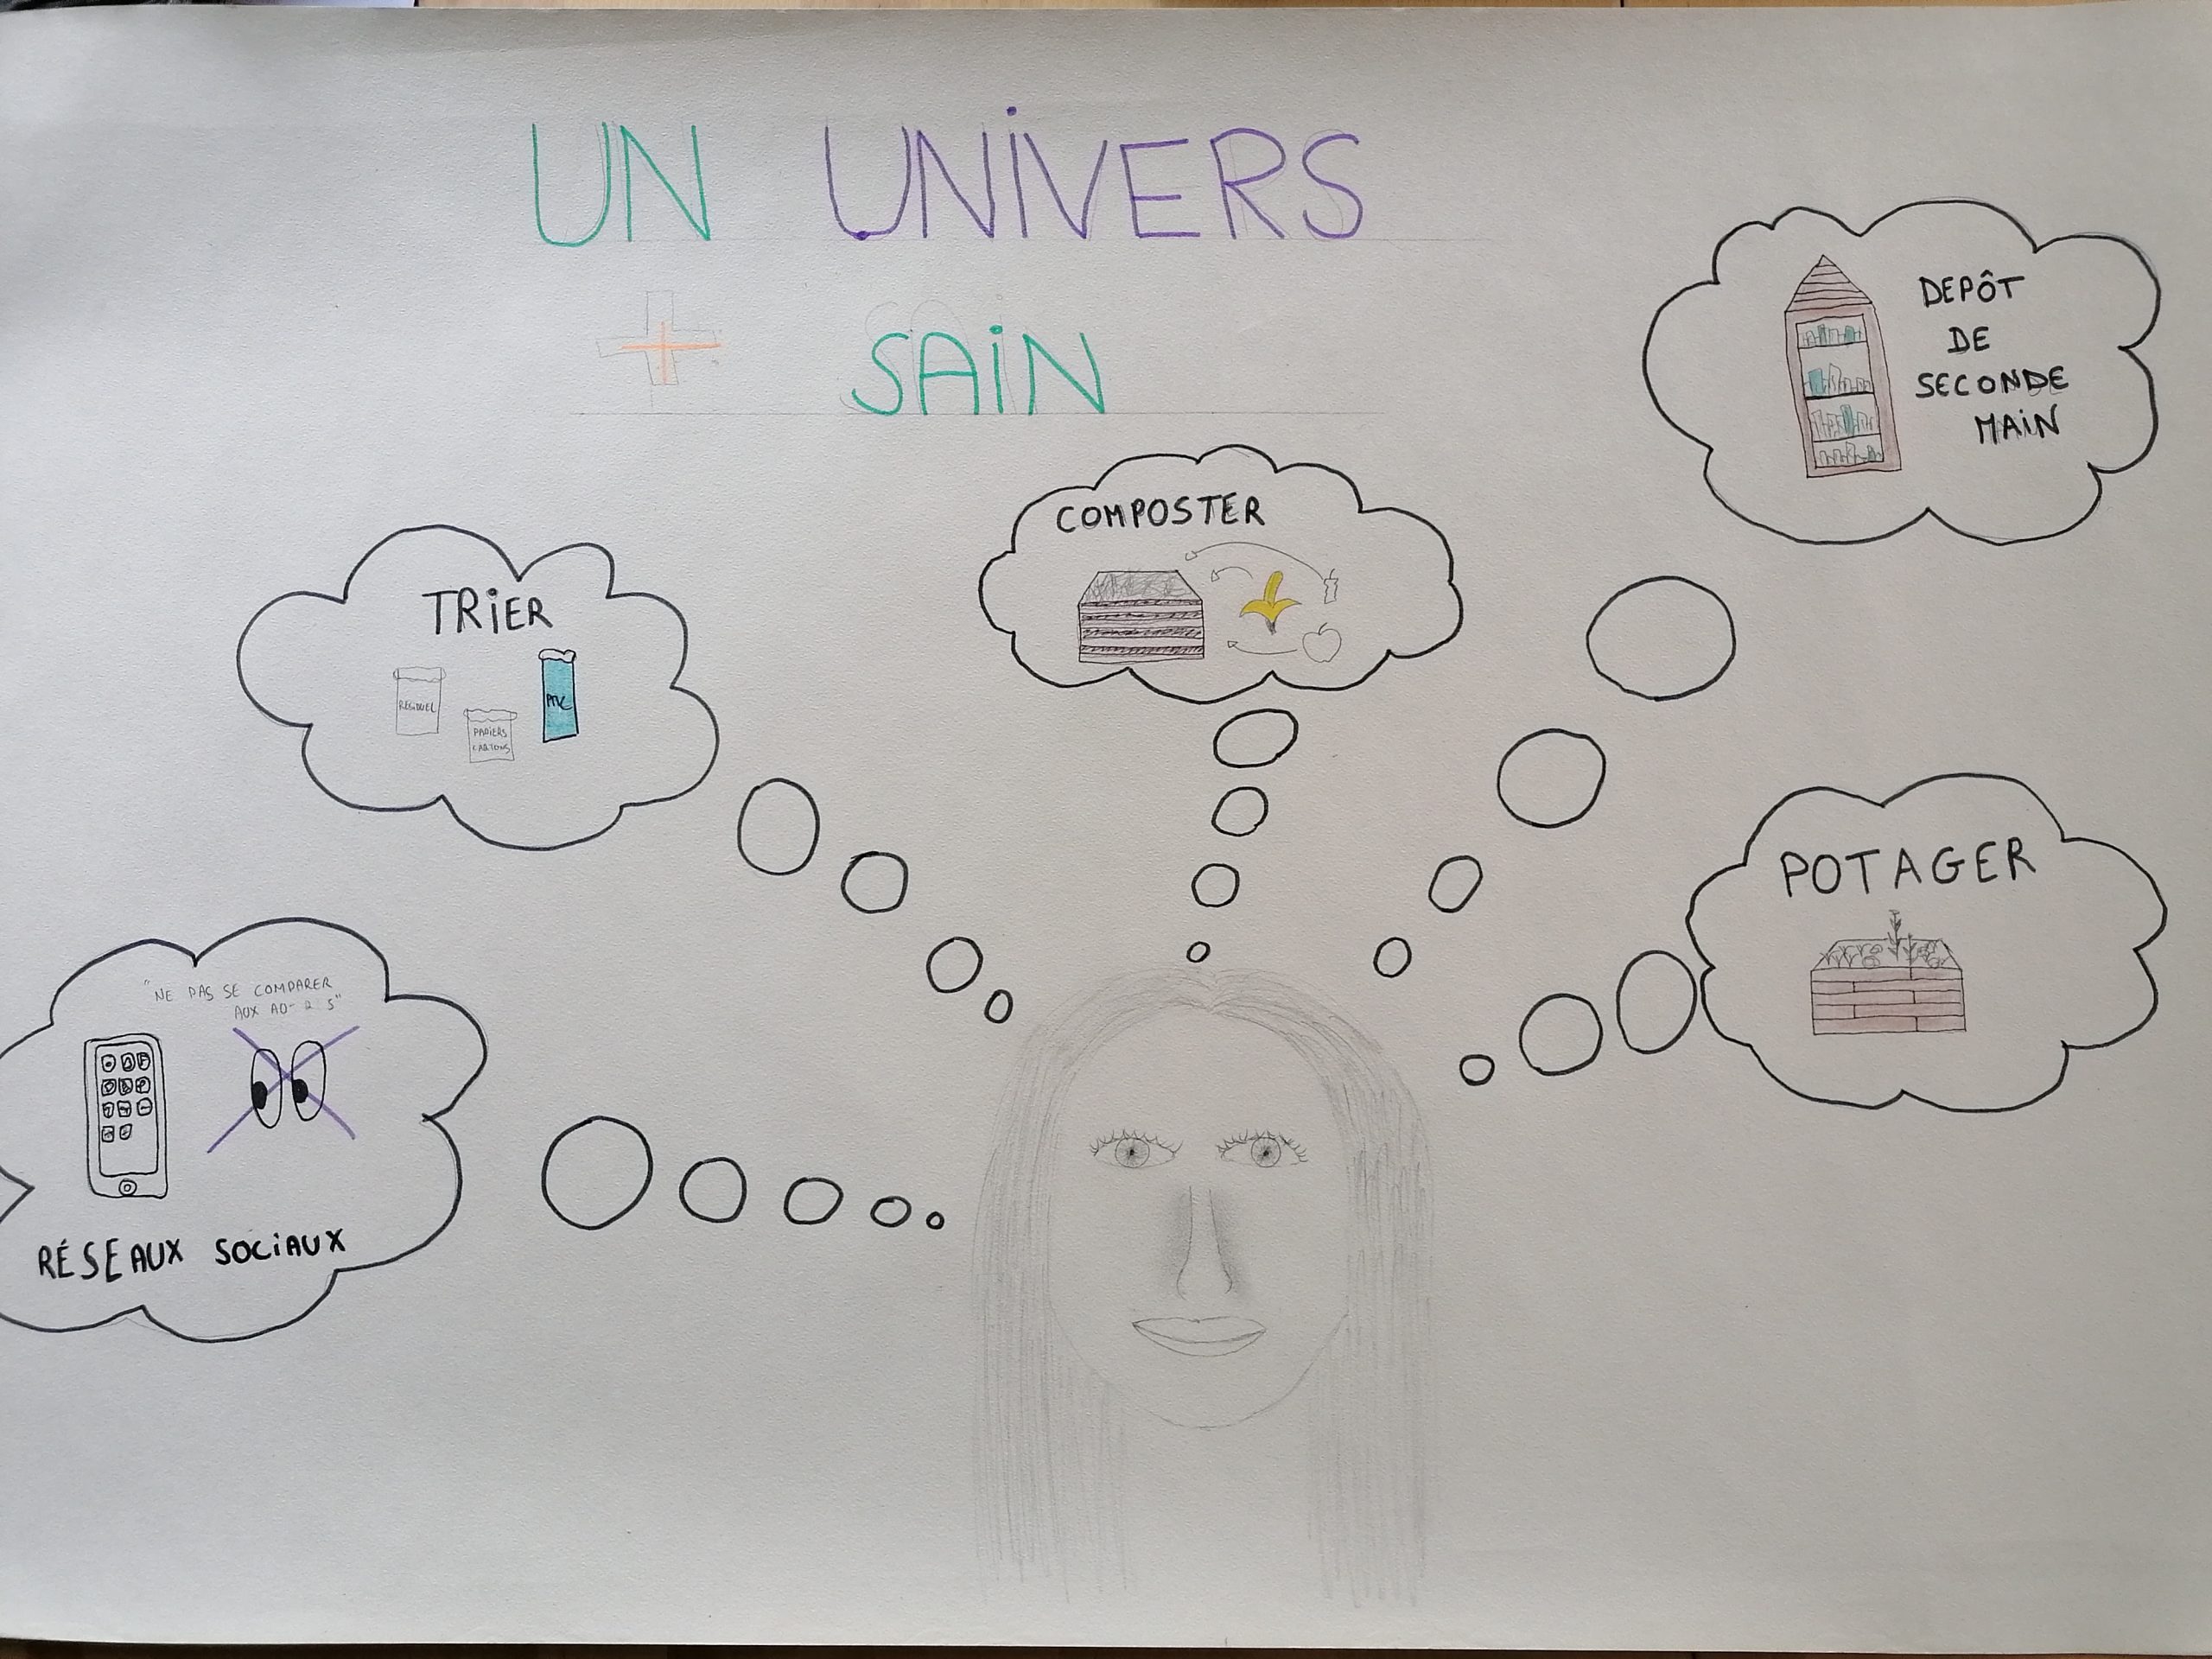 UN UNIVERS
+ SAIN
DEPÔT
DE
SECONDE
MAIN
COMPOSTER
TRIER
RÉSIDUEL
PAPIERS
CARTONS
PMC
POTAGER
"NE PAS SE COMPARER
AUX
RÉSEAUX SOCIAUX